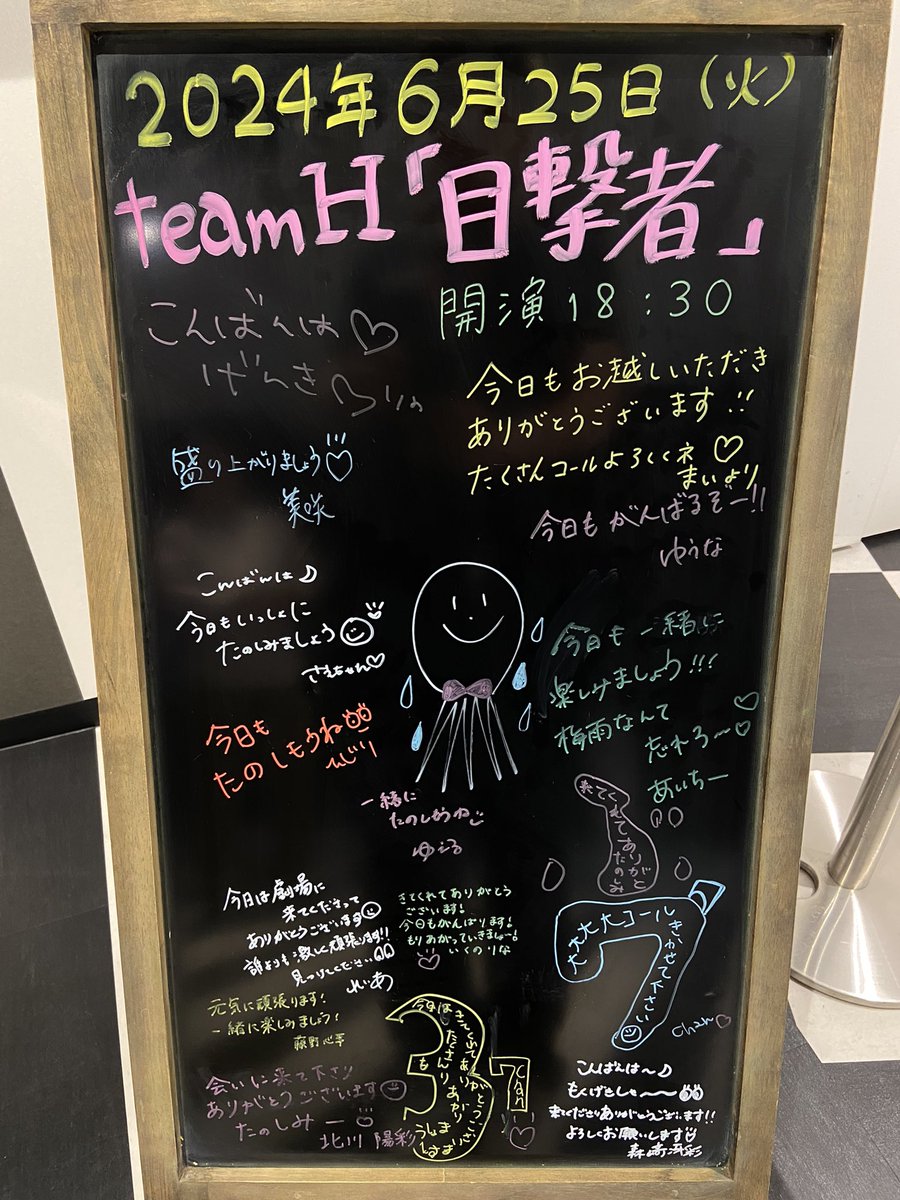 2024年6月25日(火)
teamH「目撃者」
開演18:30
こんばんは♡
げんき
今日もお越しいただき
ありがとうございます!!
たくさんコールよろしくネ♡
まいより
盛り上がりましょう♡
美咲
今日もがんばるぞー!!
ゆうな
こんばんは♪
今日もいっしょに
たのしみましょう
さえちゃん♡
今日も一緒に
楽しみましょう!!!
梅雨なんて
忘れろ〜♡
あいちー
今日も
たのしもうね
ひじり
一緒に
たのしもうね
ゆえる
来てくれてありがと
たのしみ
今日は劇場に
来てくださって
ありがとうございます
誰よりも激しく頑張ります!!
見つけてください
れいあ
きてくれてありがとう
ございます!
今日もがんばります!
もりあがっていきましょー!
いくのりな
大大大大コールきかせて下さい
chan♡
元気に頑張ります!
一緒に楽しみましょう!
会いに来て下さり
ありがとうございます
たのしみー
北川 陽彩
今日は
きてくれてありがとうござい
ます
たくさんもりあがり
ましょう
tean
こんばんは〜♪
もくげきしゃ〜〜
来てくださりありがとうございます!!
よろしくお願いします